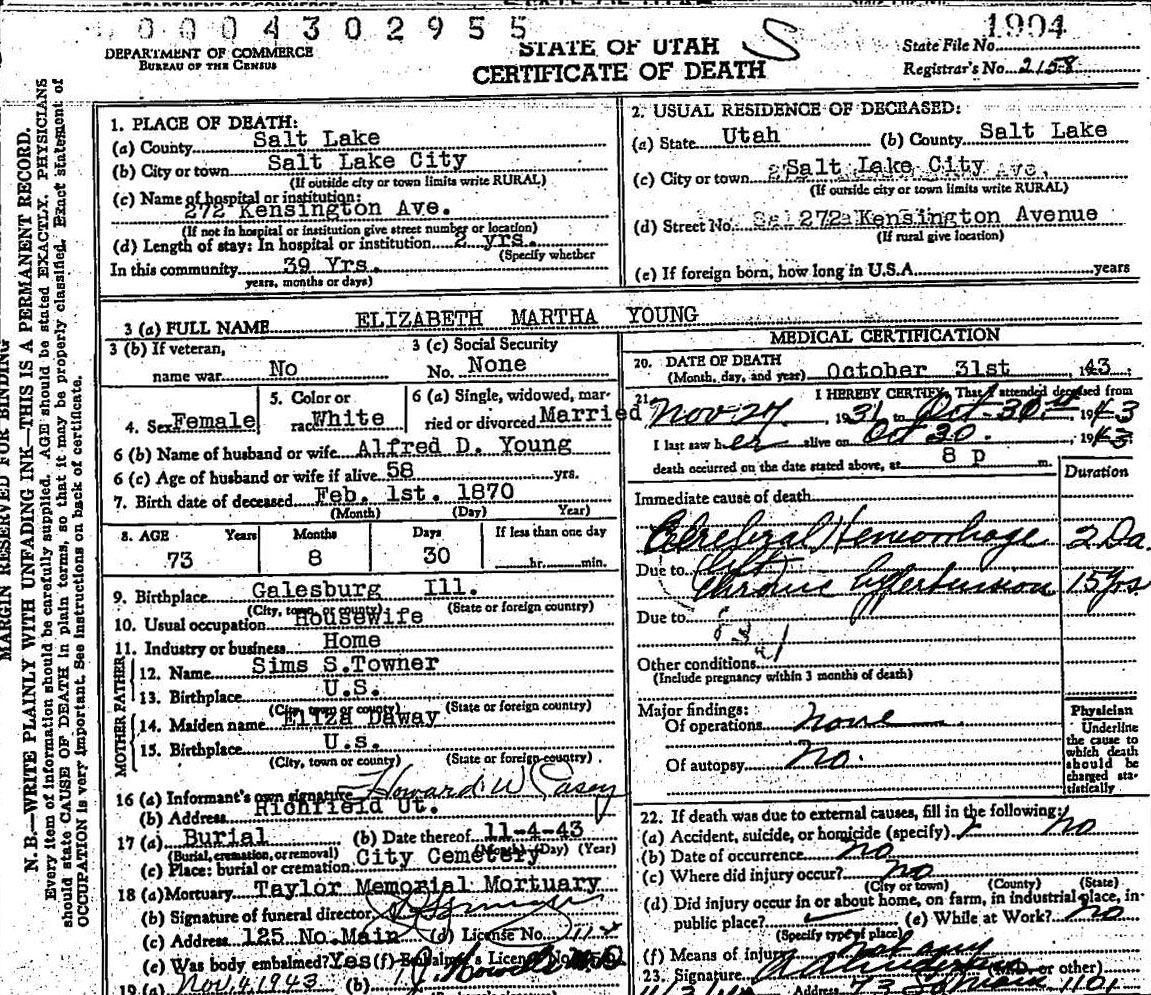 0 0 0 4 3 0 2 9 5 5
1904
DEPARTMENT OF COMMERCE
BUREAU OF THE CENSUS
STATE OF UTAH
CERTIFICATE OF DEATH
S
State File No.
Registrar's No. 2158
MARGIN RESERVED FOR BINDING
N. B.—WRITE PLAINLY WITH UNFADING INK—THIS IS A PERMANENT RECORD.
Every item of information should be carefully supplied. AGE should be stated EXACTLY. PHYSICIANS
should state CAUSE OF DEATH in plain terms, so that it may be properly classified. Exact statement of
OCCUPATION is very important. See instructions on back of certificate.
1. PLACE OF DEATH:
(a) County Salt Lake
(b) City or town Salt Lake City
(If outside city or town limits write RURAL)
(c) Name of hospital or institution:
272 Kensington Ave.
(If not in hospital or institution give street number or location)
(d) Length of stay: In hospital or institution 2 yrs.
(Specify whether
In this community 39 Yrs.
years, months or days)
2. USUAL RESIDENCE OF DECEASED:
(a) State Utah (b) County Salt Lake
(c) City or town Salt Lake City
(If outside city or town limits write RURAL)
(d) Street No. 272 Kensington Avenue
(If rural give location)
(e) If foreign born, how long in U.S.A. years
3 (a) FULL NAME ELIZABETH MARTHA YOUNG
3 (b) If veteran,
name war No
3 (c) Social Security
No. None
4. Sex Female
5. Color or
race White
6 (a) Single, widowed, mar-
ried or divorced Married
6 (b) Name of husband or wife Alfred D. Young
6 (c) Age of husband or wife if alive 58 yrs.
7. Birth date of deceased Feb. 1st. 1870
(Month) (Day) Year)
8. AGE Years Months Days If less than one day
73 8 30 hr. min.
9. Birthplace Galesburg Ill.
(City, town or county) (State or foreign country)
10. Usual occupation Housewife
11. Industry or business Home
FATHER
12. Name Sims S. Towner
13. Birthplace U.S.
(City, town or county) (State or foreign country)
MOTHER
14. Maiden name Eliza Daway
15. Birthplace U.s.
(City, town or county) (State or foreign country)
16 (a) Informant's own signature Howard W Casey
(b) Address Richfield Ut.
17 (a) Burial (b) Date thereof 11-4-43
(Burial, cremation, or removal) (Month) (Day) (Year)
(c) Place: burial or cremation City Cemetery
18 (a) Mortuary Taylor Memorial Mortuary
(b) Signature of funeral director
(c) Address 125 No. Main (d) License No.
(e) Was body embalmed? Yes (f) Embalmer's License No.
19 (a) Nov. 4 1943 (b)
MEDICAL CERTIFICATION
20. DATE OF DEATH
(Month, day, and year) October 31st, 1943
21. I HEREBY CERTIFY, That I attended deceased from
Nov 27, 1931 to Oct 30th 1943
I last saw her alive on Oct 30, 1943
death occurred on the date stated above, at 8 p m.
Duration
Immediate cause of death
Cerebral Hemorrhage 2 Da.
(left)
Due to Chronic Hypertension 15 yrs
Due to
Other conditions
(Include pregnancy within 3 months of death)
Major findings:
Of operations none
Of autopsy No.
Physician
Underline
the cause to
which death
should be
charged sta-
tistically
22. If death was due to external causes, fill in the following:
(a) Accident, suicide, or homicide (specify) no
(b) Date of occurrence no
(c) Where did injury occur? no
(City or town) (County) (State)
(d) Did injury occur in or about home, on farm, in industrial place, in
public place? (e) While at Work? no
(Specify type of place)
(f) Means of injury not any
23. Signature (M.D. or other)
Address 73 So Main